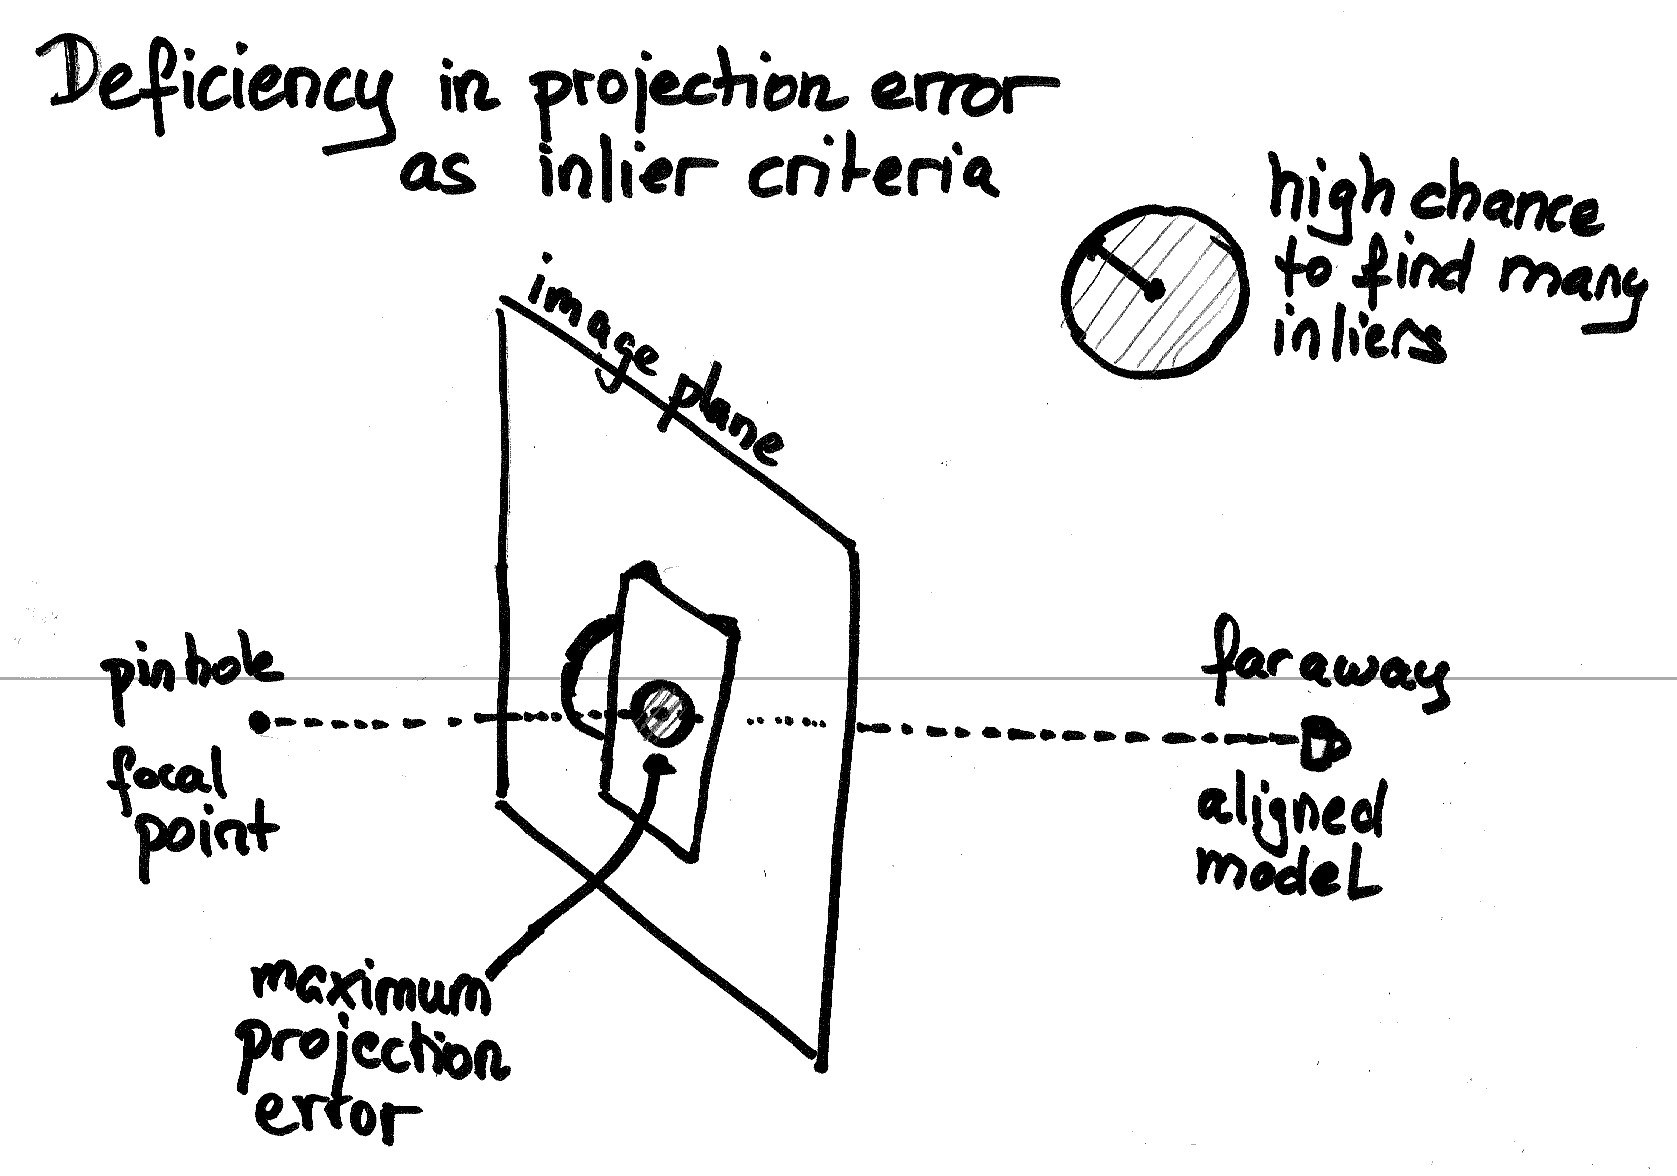 Deficiency in projection error
as inlier criteria
high chance
to find many
inliers
image plane
pinhole
focal
point
far away
aligned
model
maximum
projection
error